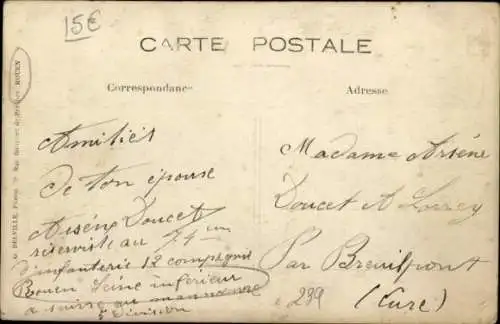 15€
CARTE POSTALE
Correspondance
Adresse
ROUEN
Amitiés
de ton épouse
Arsène Doucet
reserviste au 74 eme
d'infanterie 12 compagnie
Rouen Seine inférieur
a suivre au manœuvre
5 division
Madame Arsène
Doucet A Lorrey
Par Breuilpont
289 (Eure)